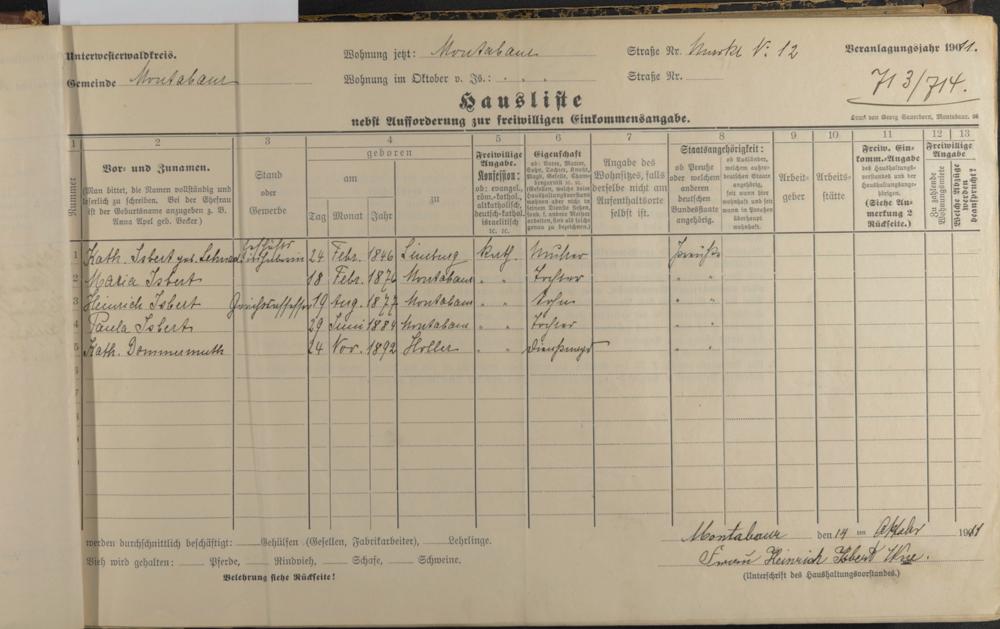 Unterwesterwaldkreis.
Gemeinde Montabaur
Wohnung jetzt: Montabaur
Straße Nr. Markt No. 12
Veranlagungsjahr 1911.
Wohnung im Oktober v. Js.: " " "
Straße Nr.
713/714.
Hausliste
nebst Aufforderung zur freiwilligen Einkommensangabe.
Druck von Georg Sauerborn, Montabaur.
1 2 3 4 5 6 7 8 9 10 11 12 13
Nummer
Vor- und Zunamen.
(Man bittet, die Namen vollständig und
leserlich zu schreiben. Bei der Ehefrau
ist der Geburtsname anzugeben z. B.
Anna Apel geb. Becker.)
Stand
oder
Gewerbe
geboren
am
Tag Monat Jahr
zu
Freiwillige
Angabe.
Konfession:
ob: evangel.,
röm.-kathol.,
altkatholisch,
deutsch-kathol.
israelitisch
rc. rc.
Eigenschaft
ob: Vater, Mutter,
Sohn, Tochter, Knecht,
Magd, Geselle,
Angabe des
Wohnsitzes, falls
derselbe nicht am
Aufenthaltsorte
selbst ist.
Staatsangehörigkeit:
ob Preuße
oder welchem
anderen
deutschen
Bundesstaate
angehörig.
ob Ausländer,
welchem außer-
deutschen Staate
angehörig,
seit wann hier
wohnhaft und seit
wann in Preußen
überhaupt
wohnhaft.
Arbeit-
geber
Arbeits-
stätte
Freiw. Ein-
komm.-Angabe
des Haushaltungs-
vorstandes und der
Haushaltungsange-
hörigen.
(Siehe An-
merkung 2
Rückseite.)
Freiwillige
Angabe
Zu zahlende
Wohnungsmiete
Welche Abzüge
werden
beansprucht?
1 Kath. Isbert geb. 24 Febr. 1846 Limburg kath. Mutter Preuße
2 Maria Isbert 18 Febr. 1876 Montabaur " " Tochter " "
3 Heinrich Isbert Gerichtsassessor 19 Aug. 1877 Montabaur " " Sohn " "
4 Paula Isbert 29 Juni 1884 Montabaur " " Tochter " "
5 Kath. Dommermuth 24 Nov. 1892 Holler " " Dienstmagd " "
6
7
8
9
10
werden durchschnittlich beschäftigt: Gehülfen (Gesellen, Fabrikarbeiter), Lehrlinge.
Vieh wird gehalten: Pferde, Rindvieh, Schafe, Schweine.
Belehrung siehe Rückseite!
Montabaur den 14 ten Oktober 1911
Frau Heinrich Isbert Wwe.
(Unterschrift des Haushaltungsvorstandes.)